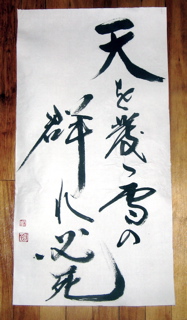 天を發つ雪の
群れ必死